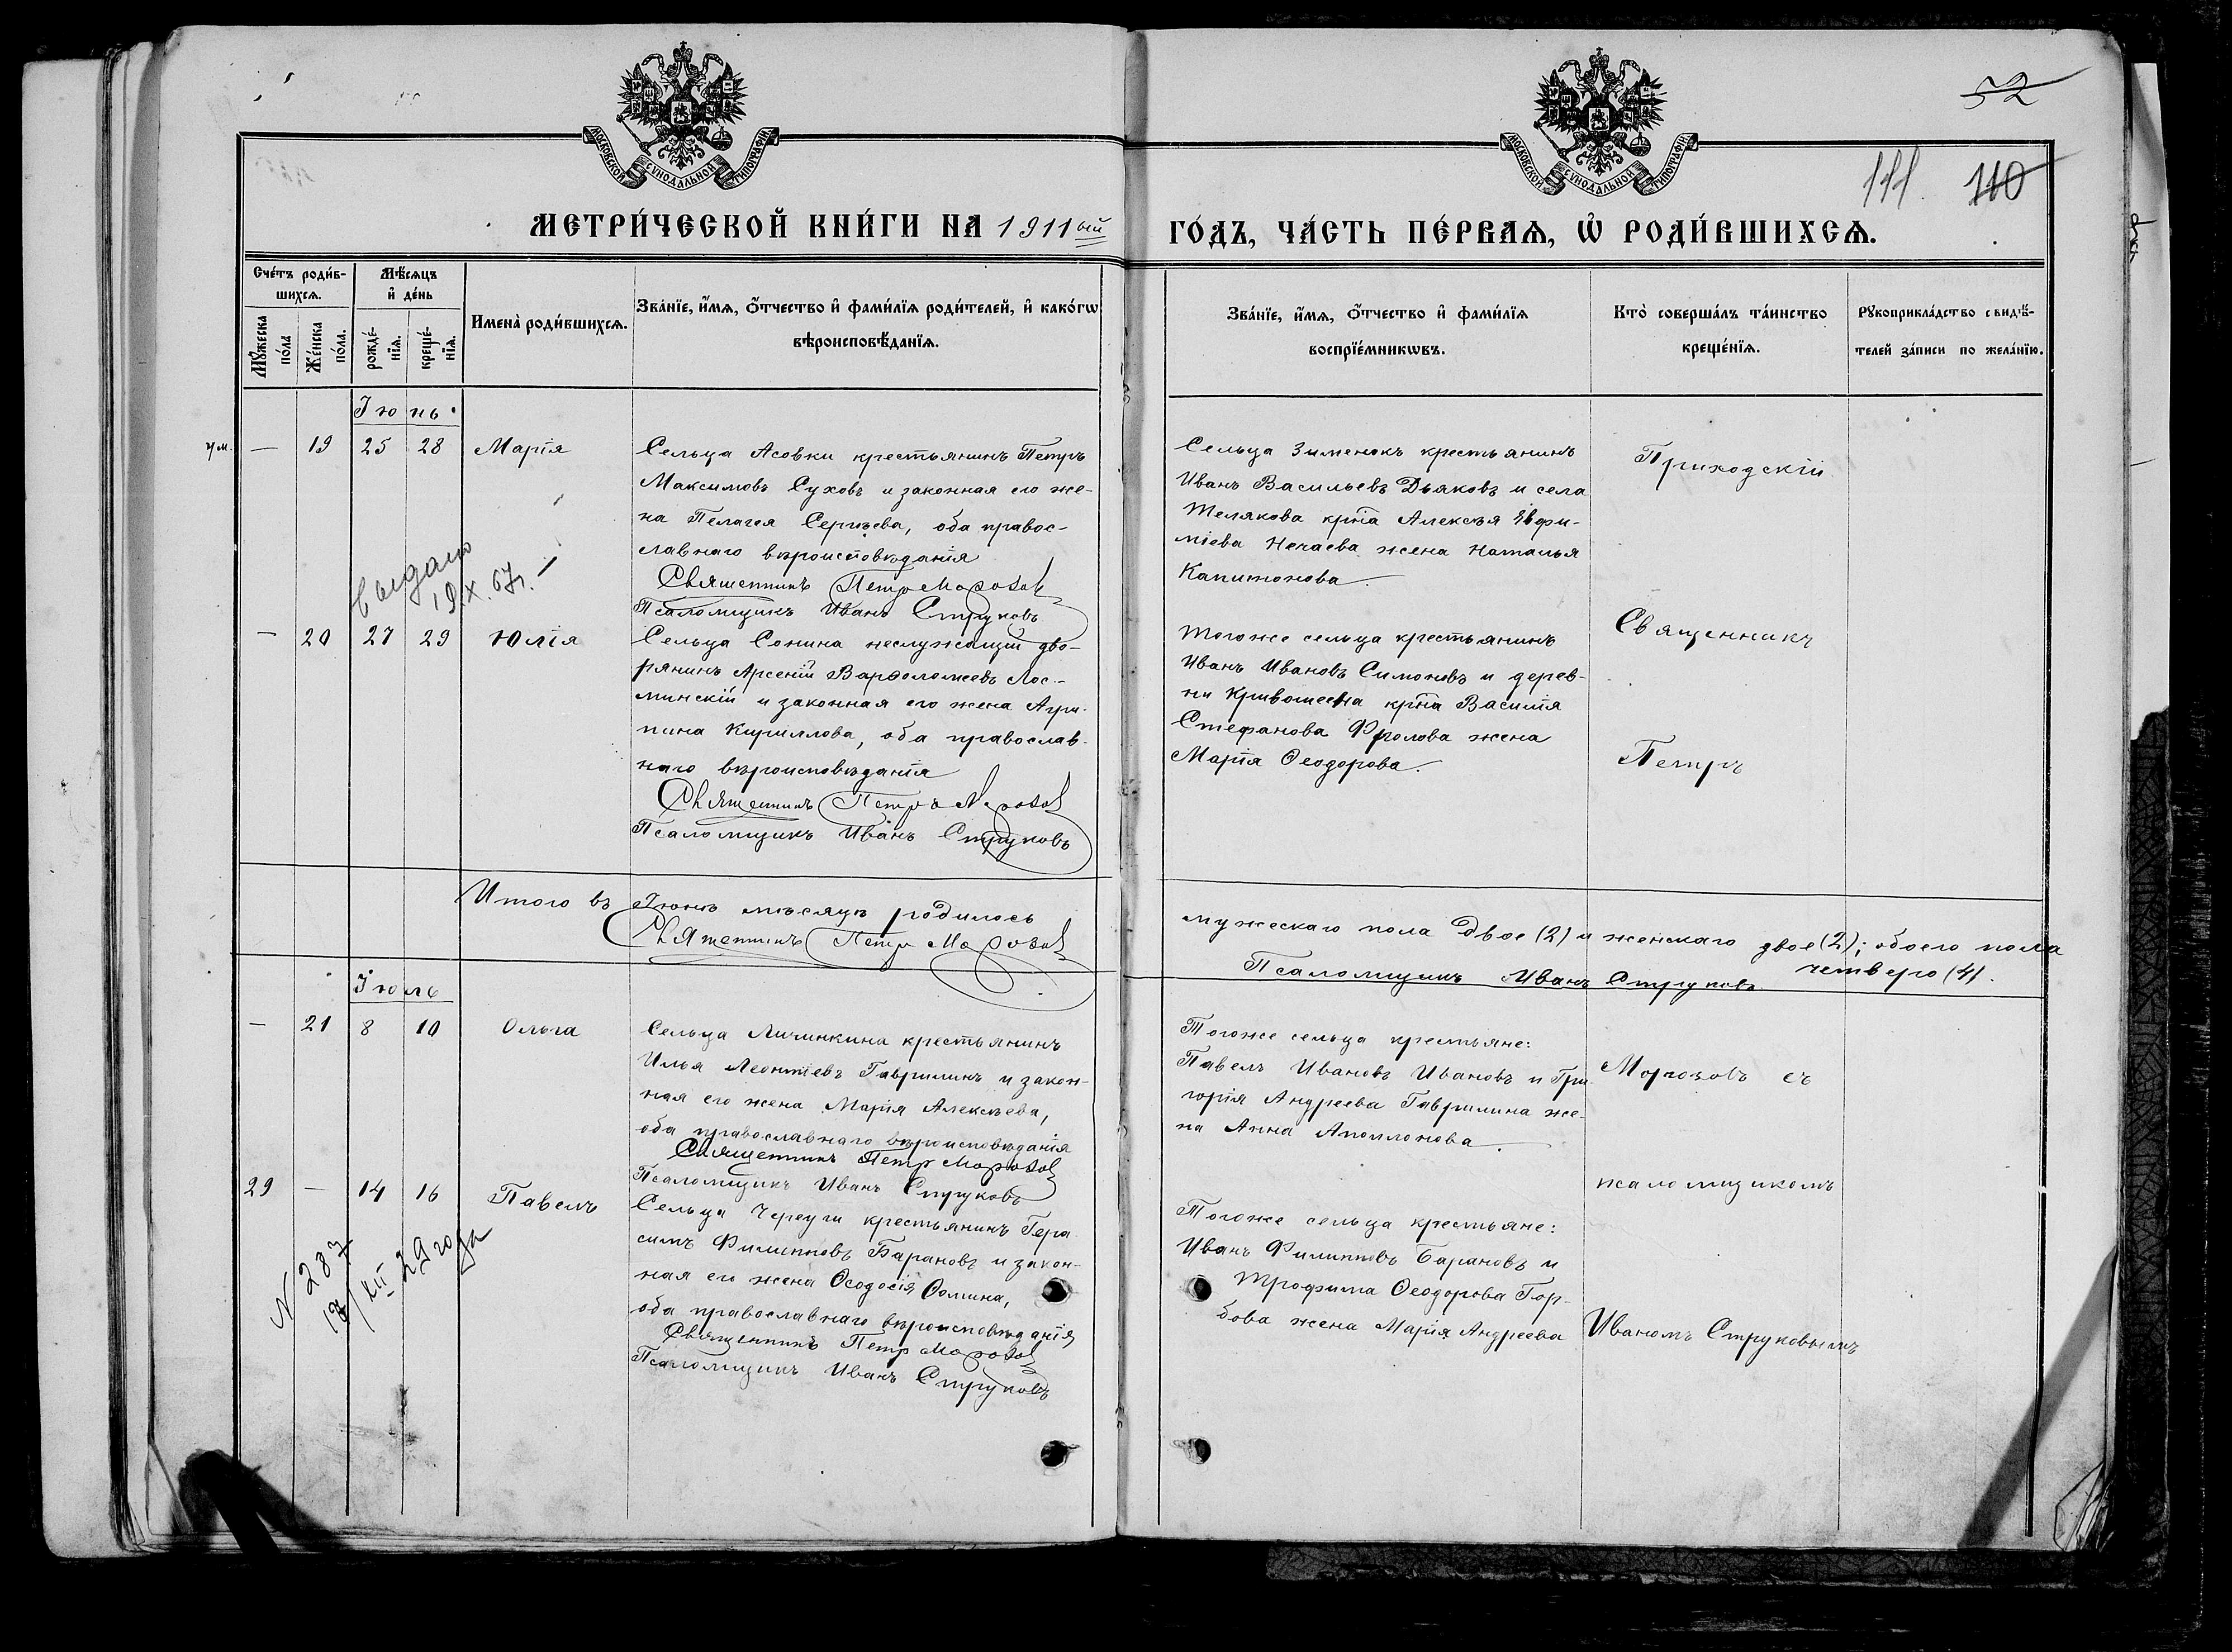 52
МОСКОВСКОЙ СѴНОДАЛЬНОЙ ТИПОГРАФІИ
МОСКОВСКОЙ СѴНОДАЛЬНОЙ ТИПОГРАФІИ
111. 110
МЕТРИ́ЧЕСКОЙ КНИ́ГИ НА 1911ый
ГО́ДЪ, ЧА́СТЬ ПЕ́РВАѦ, Ѡ҆ РОДИ́ВШИХСѦ.
Сче́тъ роди́в-
шихсѧ.
Мꙋ́жеска по́ла
Же́нска по́ла.
Мѣ́сѧцъ
и҆ де́нь
рожде́-
нїѧ.
креще́-
нїѧ.
Имена̀ роди́вшихсѧ.
Зва́нїе, и҆́мѧ, ѻ҆́тчество и҆ фами́лїѧ роди́телей, и҆ како́гѡ
вѣроисповѣ́данїѧ.
Зва́нїе, и҆́мѧ, ѻ҆́тчество и҆ фами́лїѧ
воспрїе́мникѡвъ.
Кто̀ соверша́лъ та́инство
креще́нїѧ.
Рꙋкоприкла́дство свидѣ́-
телей за́писи по жела́нїю.
Іюнь.
— 19 25 28 Марія
Сельца Асовки крестьянинъ Петръ
Максимовъ Суховъ и законная его же-
на Пелагея Сергѣева, оба правос-
лавнаго вѣроисповѣданія
Священникъ Петръ Морозовъ
Псаломщикъ Иванъ Струковъ
Сельца Зименокъ крестьянинъ
Иванъ Васильевъ Дьяковъ и села
Телякова крⷭ҇на Алексѣя Евфи-
міева Нечаева жена Наталья
Капитонова.
Приходскій
выдано
19.X.67г.
— 20 27 29 Юлія
Сельца Сонина неслужащій дво-
рянинъ Арсеній Варѳоломеевъ Лос-
минскій и законная его жена Агри-
пина Кириллова, оба православ-
наго вѣроисповѣданія
Священникъ Петръ Морозовъ
Псаломщикъ Иванъ Струковъ
Тогоже сельца крестьянинъ
Иванъ Ивановъ Симоновъ и дерев-
ни Кривошеена крⷭ҇на Василія
Стефанова Фролова жена
Марія Ѳеодорова.
Священникъ
Петръ
Итого въ Іюнѣ мѣсяцѣ родилось
мужескаго пола двое (2) и женскаго двое (2); обоего пола
четверо (4).
Священникъ Петръ Морозовъ
Псаломщикъ Иванъ Струковъ
Іюль
— 21 8 10 Ольга
Сельца Личинкина крестьянинъ
Илья Леонтіевъ Гаврилинъ и закон-
ная его жена Марія Алексѣева,
оба православнаго вѣроисповѣданія
Священникъ Петръ Морозовъ
Псаломщикъ Иванъ Струковъ
Тогоже сельца крестьяне:
Павелъ Ивановъ Ивановъ и Гри-
горія Андреева Гаврилина же-
на Анна Аполлонова.
Морозовъ съ
псаломщикомъ
29 — 14 16 Павелъ
N 287
18/XII 29 года
Сельца Череуги крестьянинъ Гера
симъ Филипповъ Барановъ и закон-
ная его жена Ѳеодосія Ѳомина,
оба православнаго вѣроисповѣданія
Священникъ Петръ Морозовъ
Псаломщикъ Иванъ Струковъ
Тогоже сельца крестьяне:
Иванъ Филипповъ Барановъ и
Трофима Ѳеодорова Гор-
бова жена Марія Андреева
Иваномъ Струковымъ